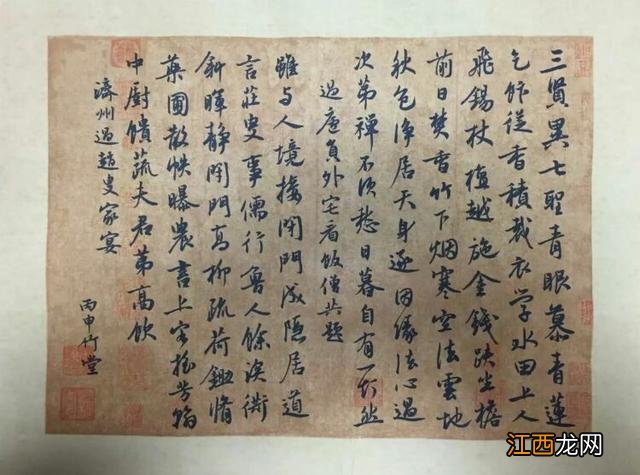 三賢異七聖青眼慕青蓮
乞飰從香積裁衣學水田上人
飛錫杖檀越施金錢趺坐檐
前日焚香竹下烟寒空法雲地
秋色净居天身逐因緣法心過
次第禅不須愁日暮自有一灯然
過盧負外宅看飯僧共題
雖与人境接閉門成隐居道
言莊叟事儒行魯人餘深衖
斜暉静閑門高柳疏荷鋤脩
藥圃散帙曝農書上客搖芳翰
中廚饋蔬夫君第高飲
濟州過趙叟家宴
丙申竹堂
江西龙网